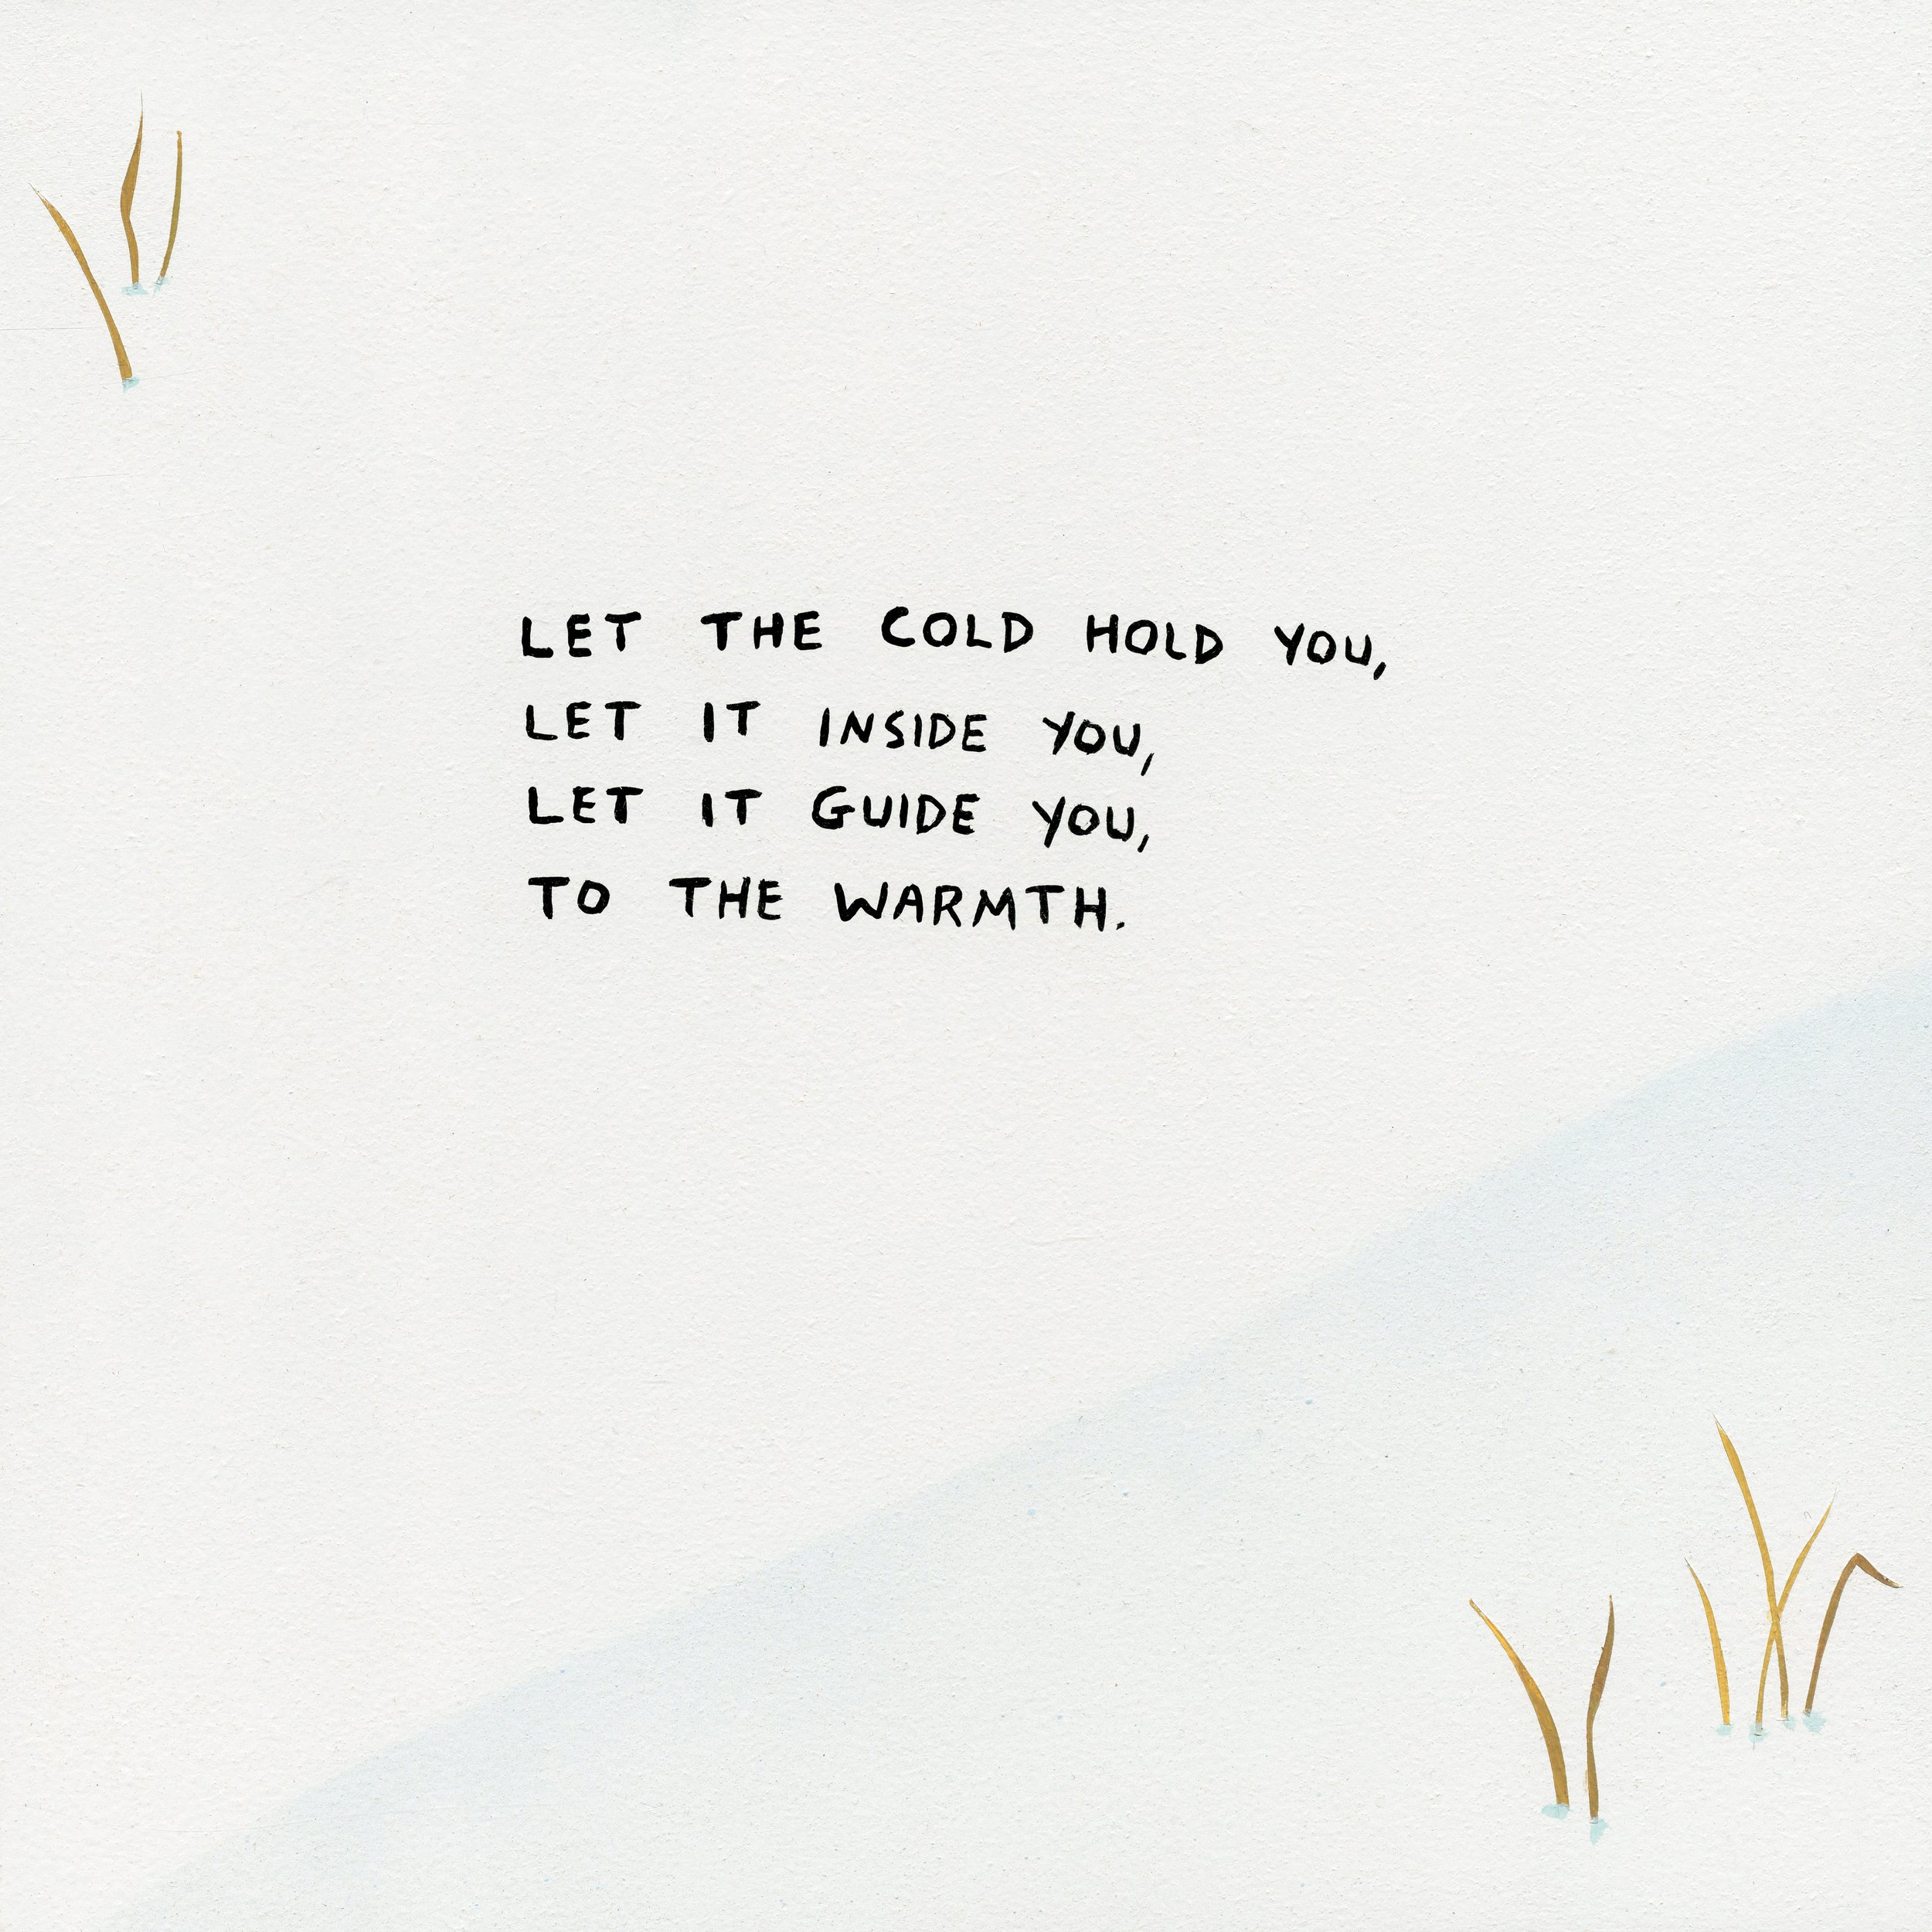 LET THE COLD HOLD YOU,
LET IT INSIDE YOU,
LET IT GUIDE YOU,
TO THE WARMTH.